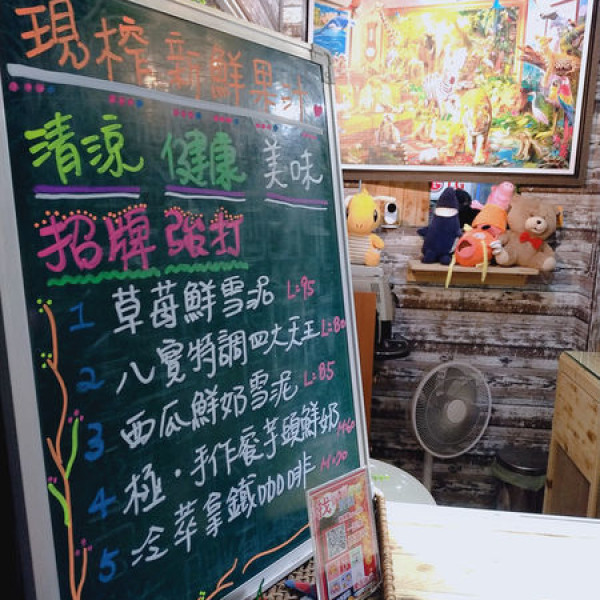 現榨新鮮果汁
清涼 健康 美味
招牌 強打
1 草莓鮮雪泥 L=95
2 八寶特調四大天王 L=80
3 西瓜鮮奶雪泥 L=85
4 極・手作蜜芋頭鮮奶 M=60
5 冷萃拿鐵咖啡 M=70